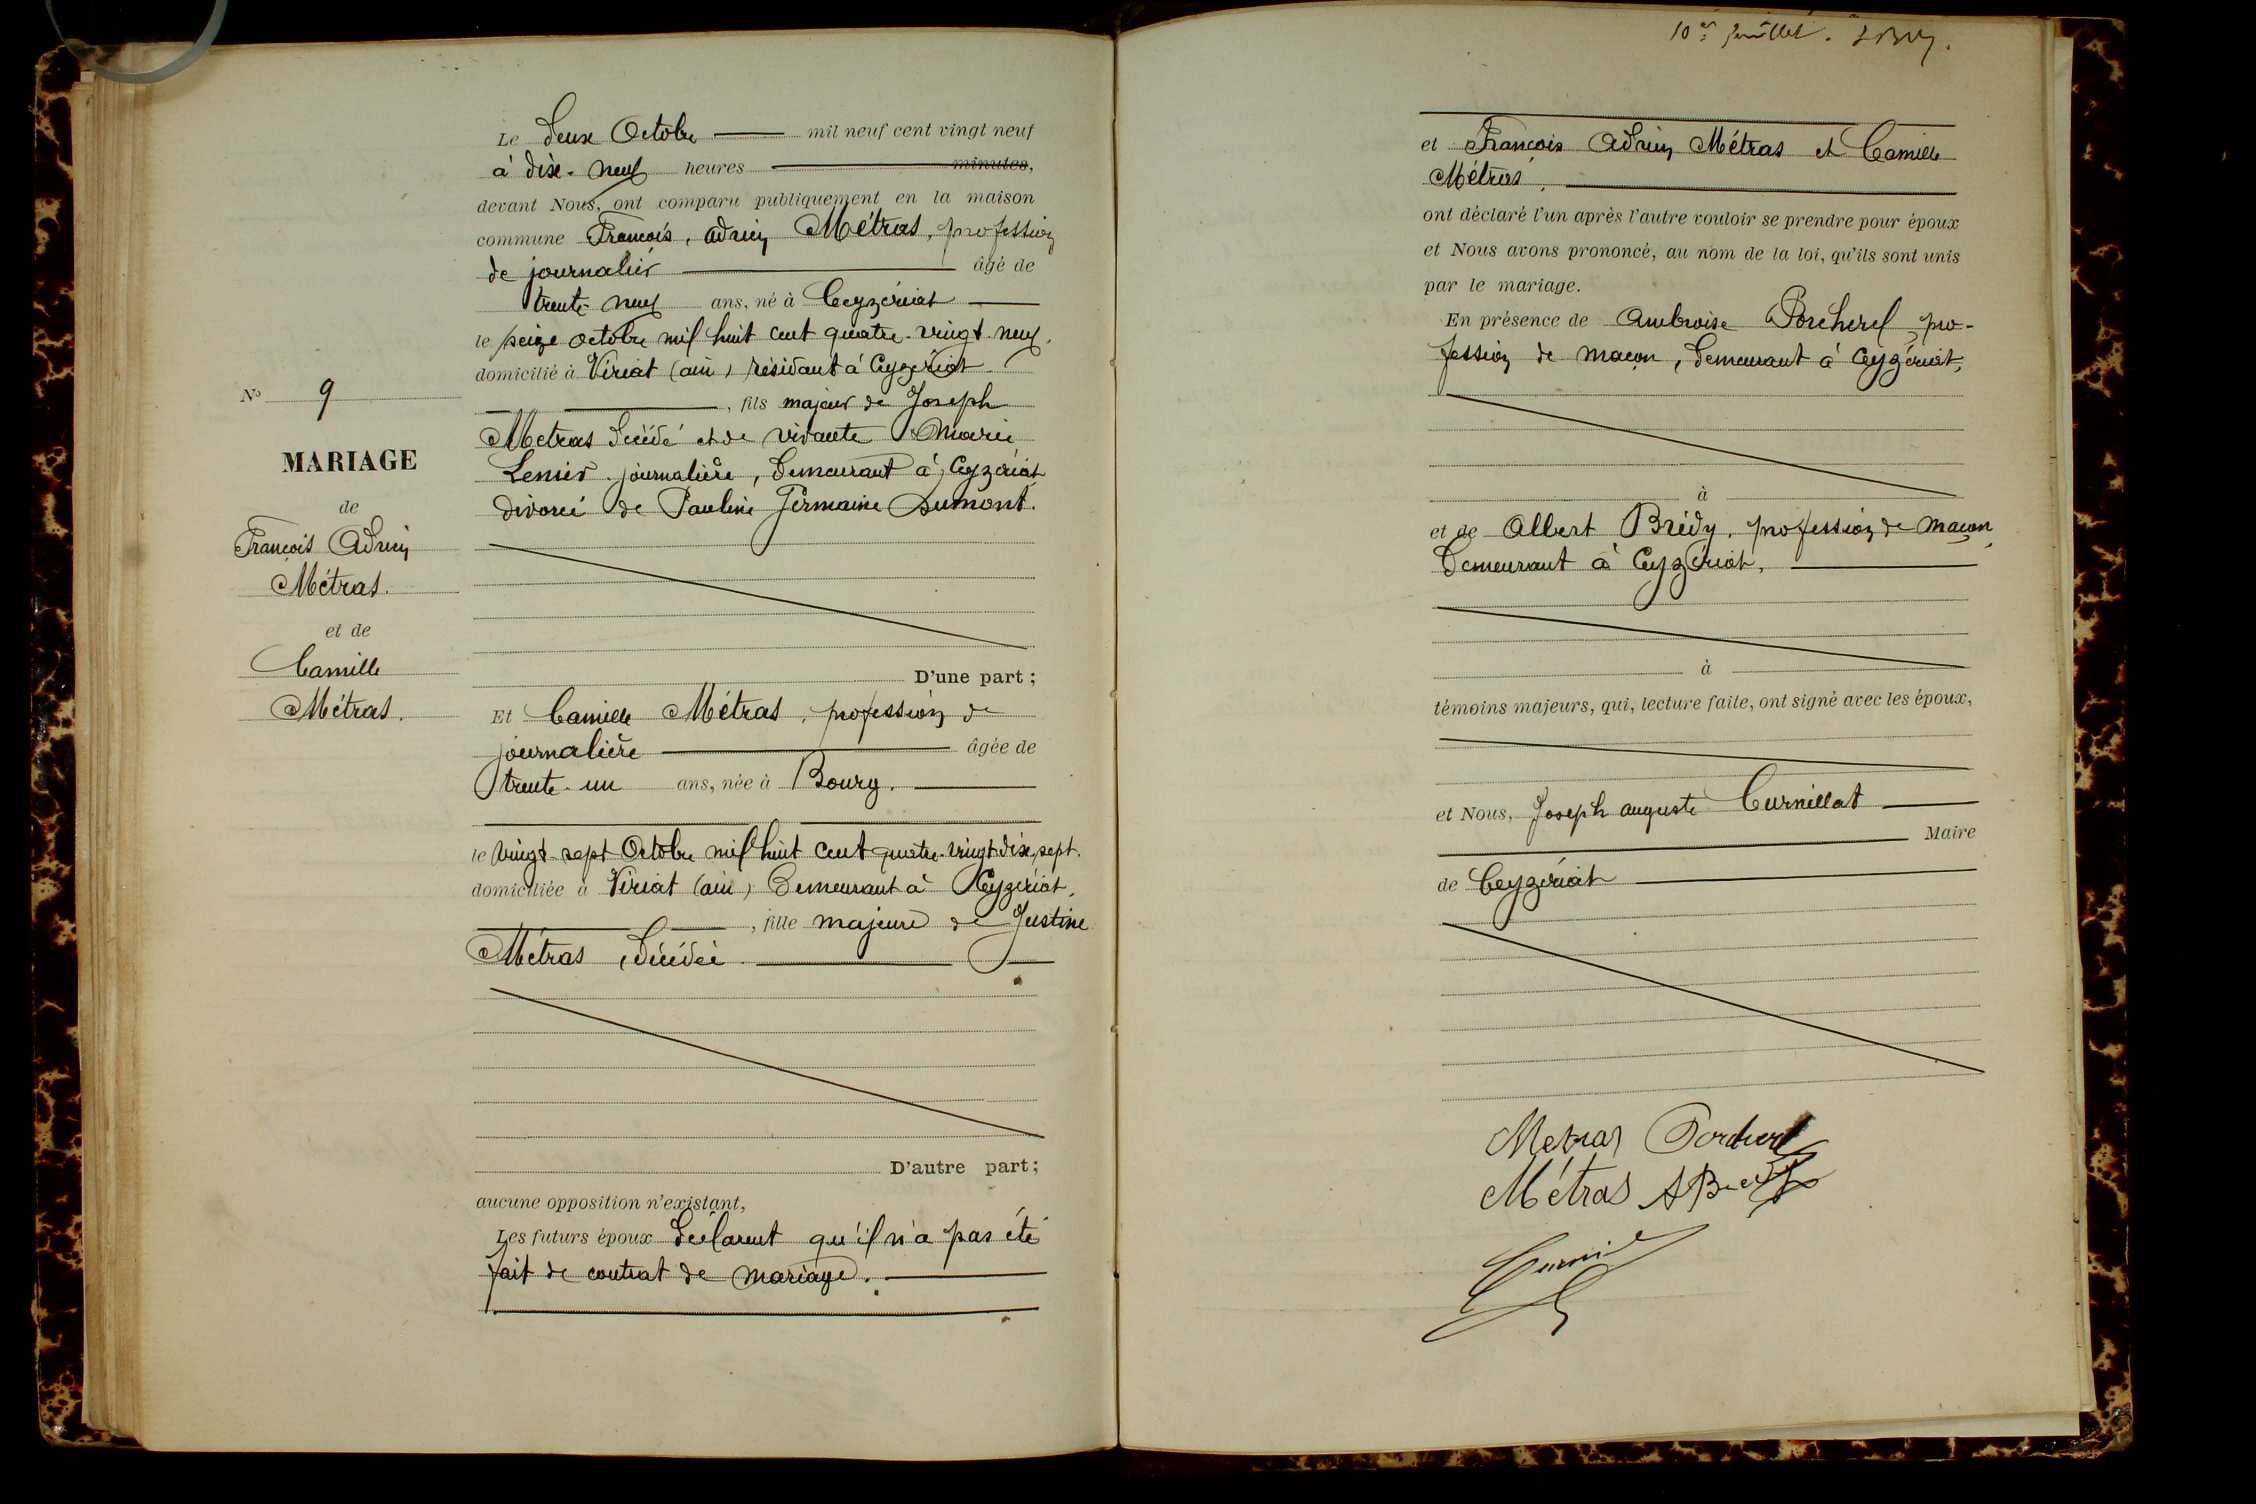 Le deux Octobre mil neuf cent vingt neuf
à dix-neuf heures minutes,
devant Nous, ont comparu publiquement en la maison
commune François, Adrien Métras, profession
de journalier âgé de
trente-neuf ans, né à Ceyzériat
le seize octobre mil huit cent quatre-vingt-neuf,
domicilié à Viriat (ain) résidant à Ceyzériat
, fils majeur de Joseph
Metras décédé et de vivante Marie
journalière, demeurant à Ceyzériat
divorcé de Pauline Germaine Dumont.
D'une part ;
Nº 9
MARIAGE
de
François Adrien
Métras.
et de
Camille
Métras.
Et Camille Métras, profession de
journalière âgée de
trente-un ans, née à Bourg.
le vingt-sept Octobre mil huit cent quatre-vingt dix-sept.
domiciliée à Viriat (ain) demeurant à Ceyzériat,
, fille majeure de Justine
Métras, décédée.
D'autre part ;
aucune opposition n'existant,
Les futurs époux déclarent qu'il n'a pas été
fait de contrat de mariage.
10e feuillet.
et François Adrien Métras et Camille
Métras,
ont déclaré l'un après l'autre vouloir se prendre pour époux
et Nous avons prononcé, au nom de la loi, qu'ils sont unis
par le mariage.
En présence de Ambroise Porcherel pro-
fession de maçon, demeurant à Ceyzériat,
à
et de Albert Brédy, profession de maçon,
demeurant à Ceyzériat,
à
témoins majeurs, qui, lecture faite, ont signé avec les époux,
et Nous, Joseph auguste Curnillat
Maire
de Ceyzériat
Metras Porcherel
Métras A Bredy